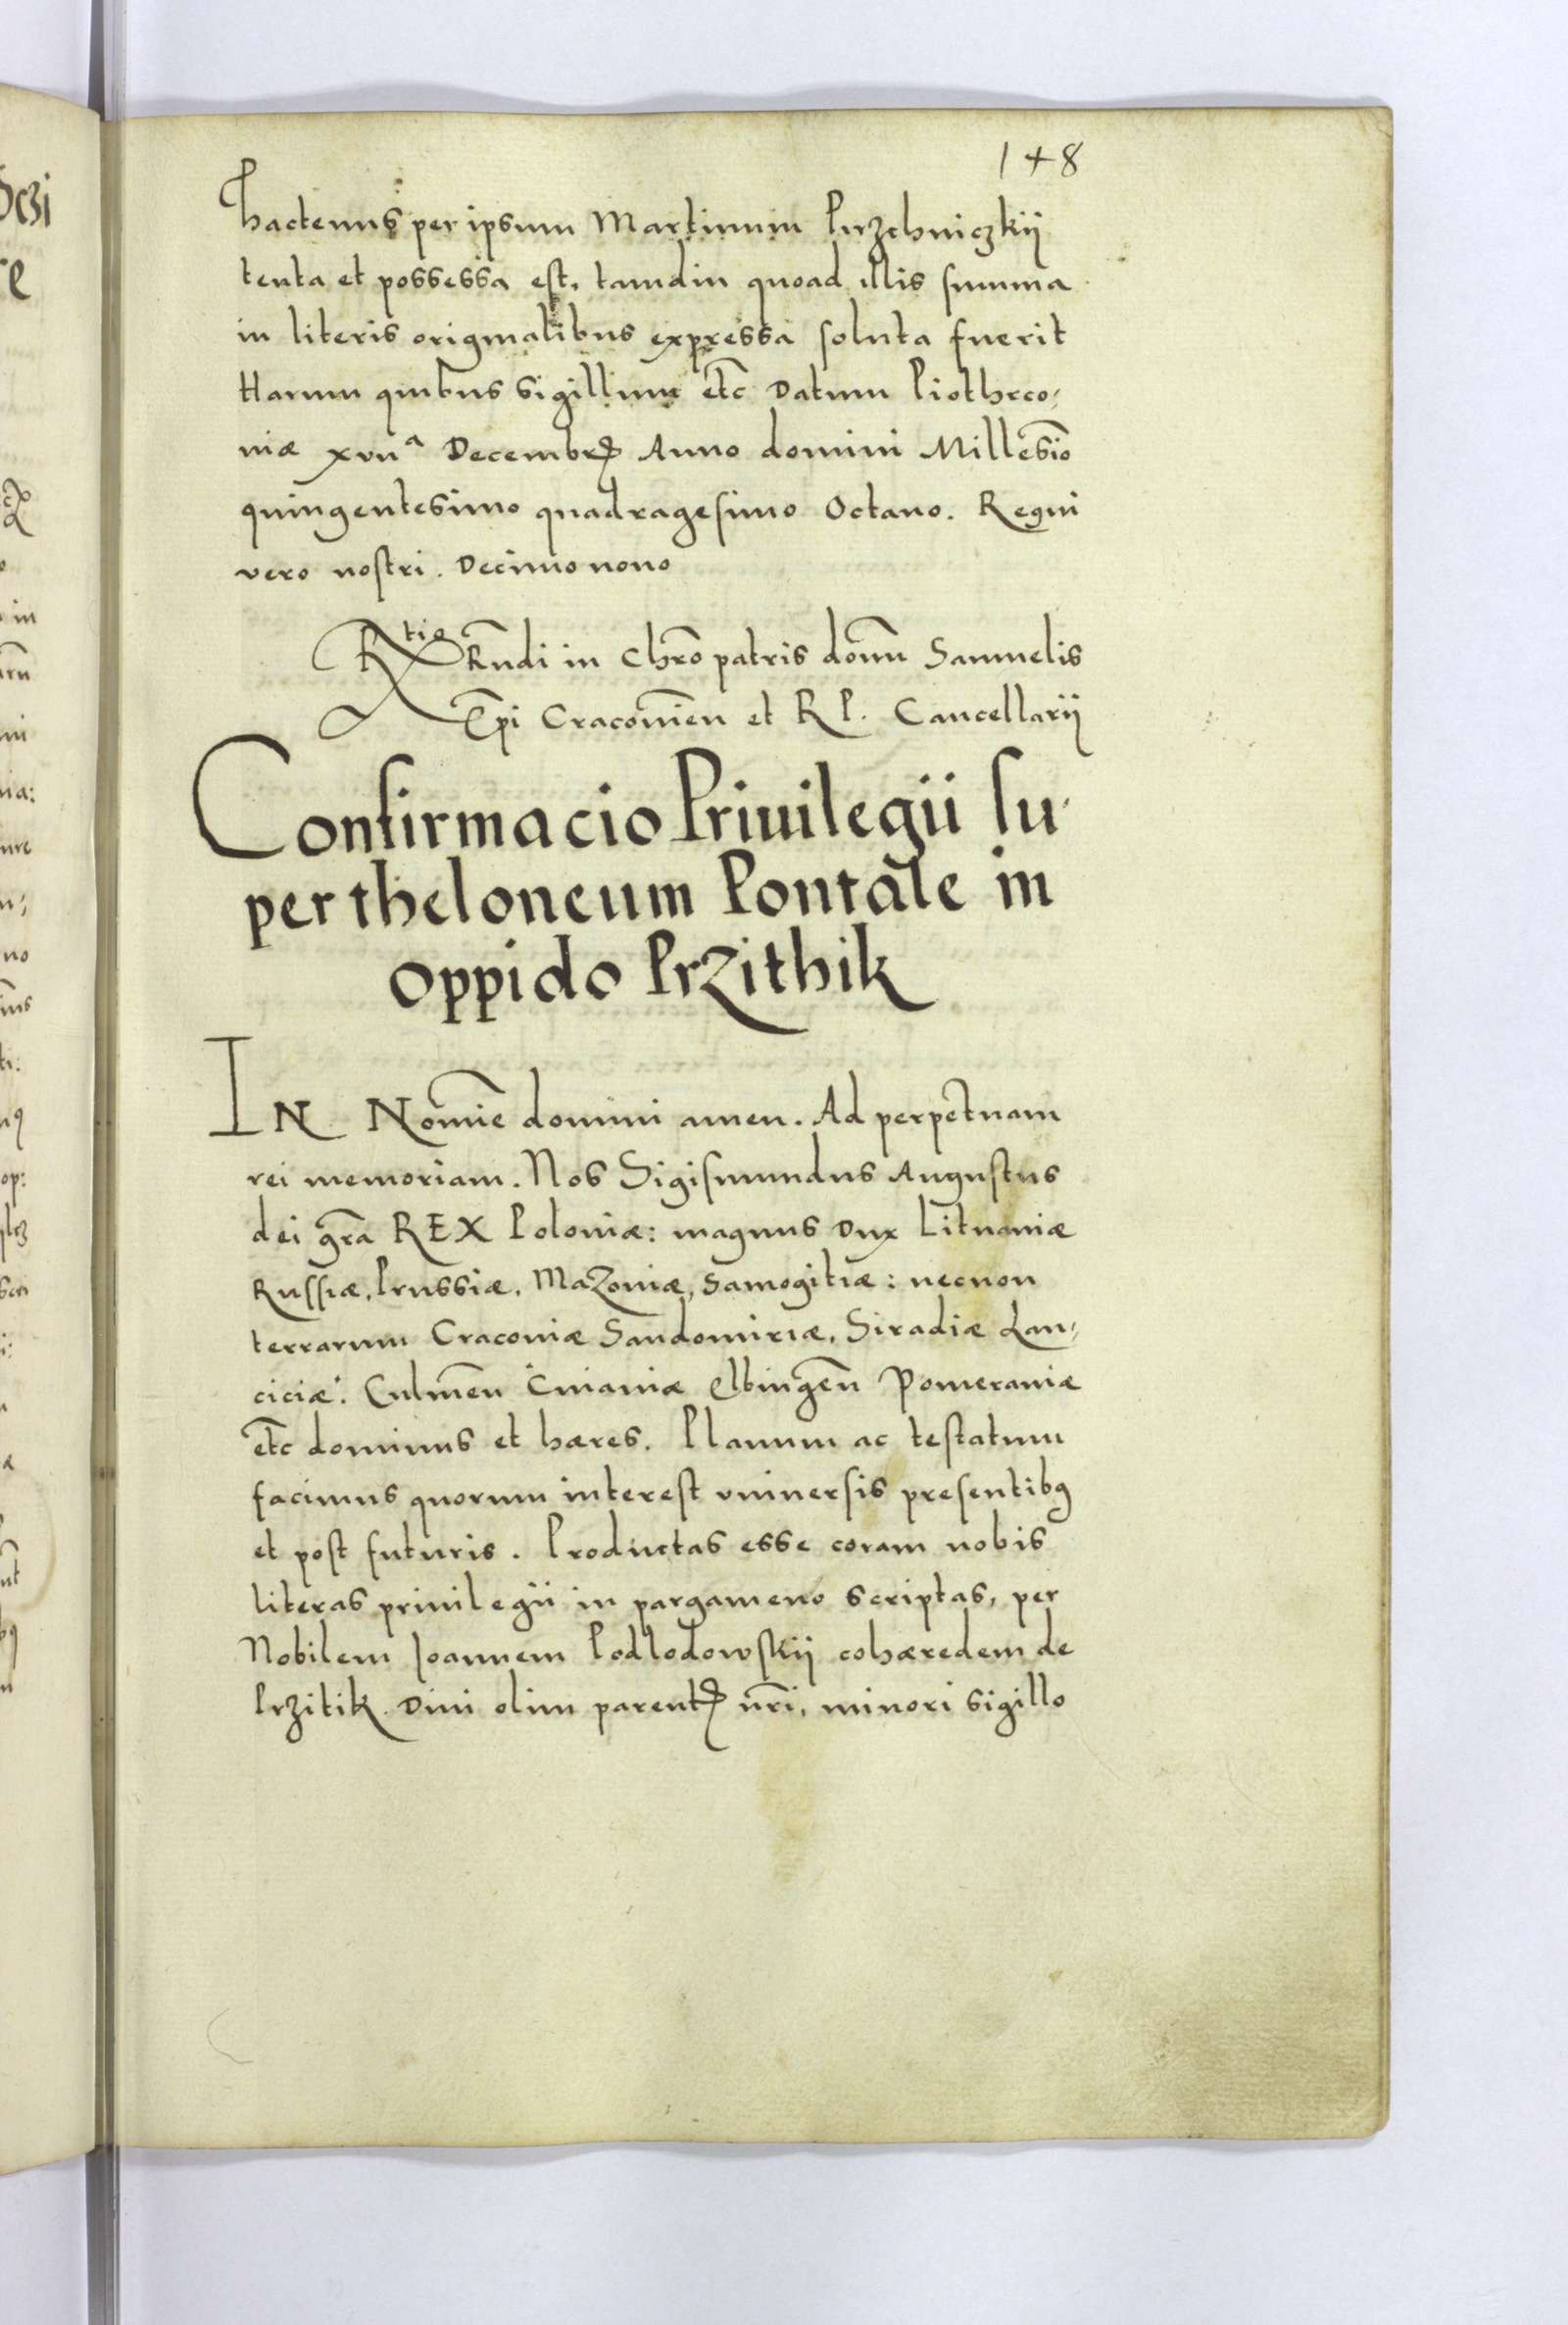 148
hactenus per ipsum Martinum Pirzchniczkij
tenta et possessa est, tamdiu quoad illis summa
in literis originalibus expressa soluta fuerit
Harum quibus sigillum etc Datum Piothrco,
uiæ xvııª Decembris Anno domini Millesio
quingentesimo quadragesimo Octauo. Regni
vero nostri. Decimo nono
Rtio Rndi in Chro patris domn Samuelis
Epi Cracouien et R P. Cancellarij
Confirmacio Priuilegii Su,
per theloneum Pontale in
oppido Przithik
IN Nomie domini amen. Ad perpetuam
rei memoriam. Nos Sigismundus Augustus
dei gra REX Poloniæ: magnus Dux Lituaniæ
Russiæ, Prussiæ, Mazouiæ, Samogitiæ: necnon
terrarum Cracouiæ Sandomiriæ, Siradiæ Lan,
ciciæ. Culmen Cuiauiæ Elbingen Pomeraniæ
etc dominus et hæres. Planum ac testatum
facimus quorum interest vniuersis presentibus
et post futuris. Productas esse coram nobis
literas priuilegii in pargameno scriptas, per
Nobilem Joannem Podlodowskij cohæredem de
Przitik Diui olim parentis nri, minori sigillo